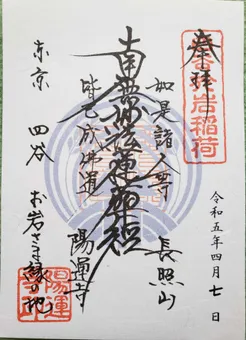 奉拝
於岩稲荷
令和五年四月七日
長照山
如見諸人等
南無妙法蓮華経
皆已成佛道
陽運寺
東京 四谷 お岩さま縁の地
陽運寺印